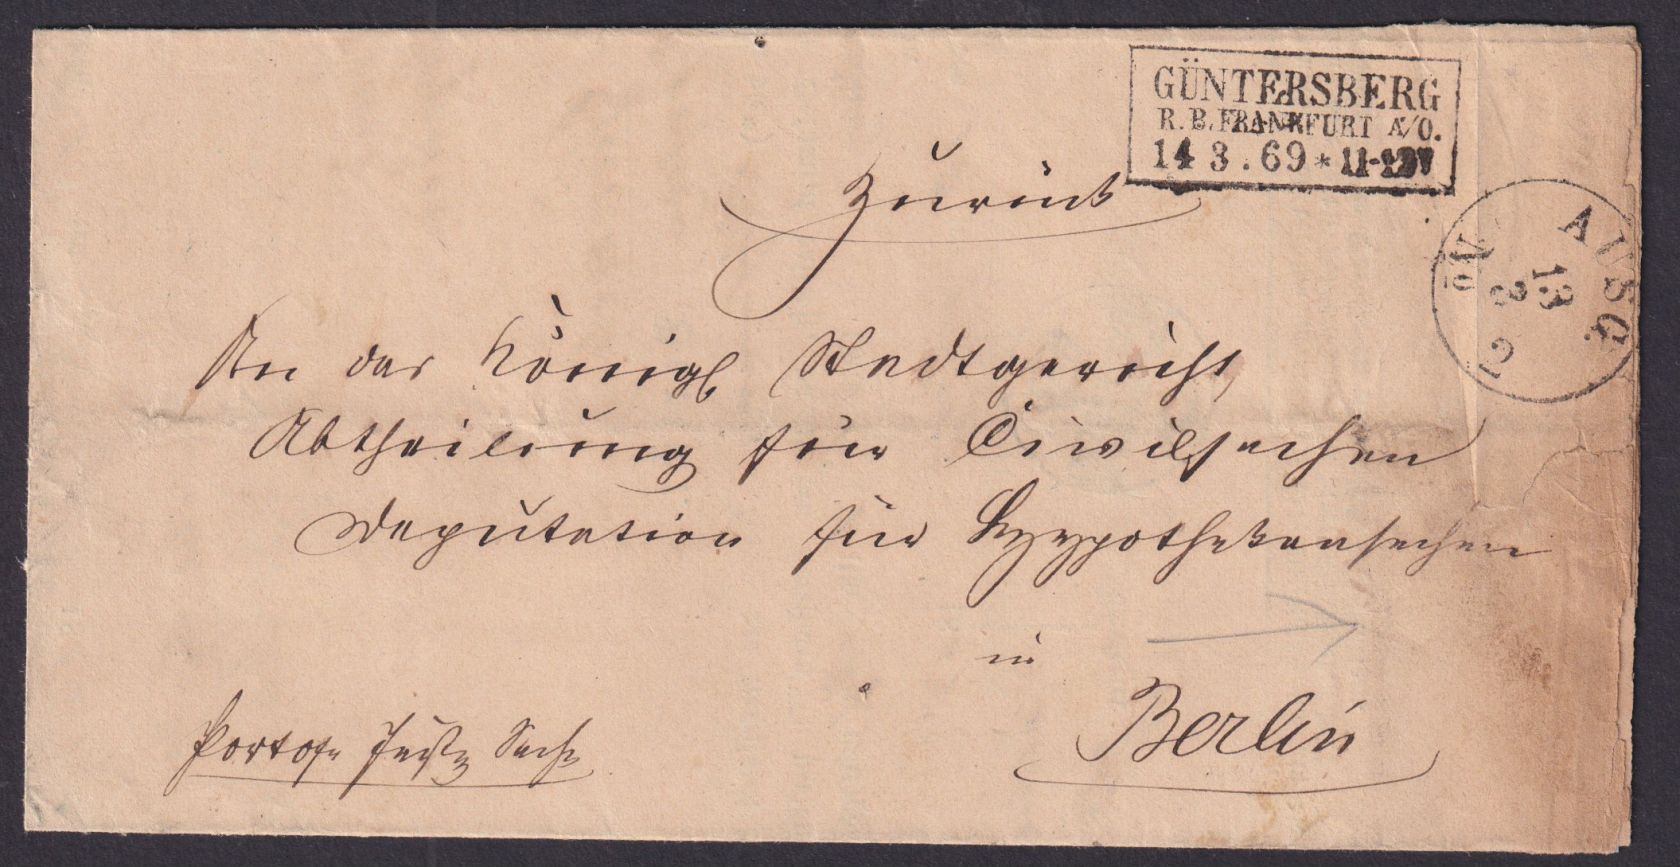 GÜNTERSBERG
R.B.FRANKFURT A/O.
14 3 . 69 * 11-12V
Zurück
AUSG.
No
13
3
An das Königl Stadtgericht,
Abtheilung für Civilsachen
Deputation für Hypothekensachen
in
Berlin
Portofr Justiz Sache